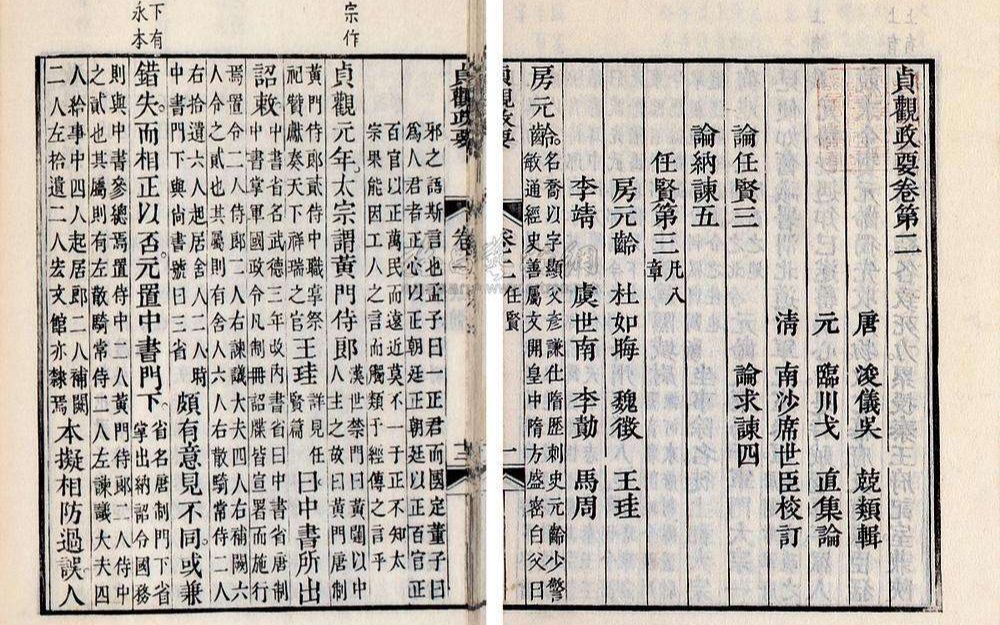 貞觀政要卷第二
唐浚儀吳 兢類輯
元臨川戈 直集論
清南沙席世臣校訂
論任賢三 論求諫四
論納諫五
任賢第三
凡八
章
房元齡 杜如晦 魏徵 王珪
李靖 虞世南 李勣 馬周
房元齡。
名喬以字顯父彥謙仕隋歷刺史元齡少警
敏通經史善屬文開皇中隋方盛密白父曰
貞觀政要
卷二 任賢
一
貞觀政要
卷一
三
宗作
下有
永本
邪之語斯言也孟子曰一正君而國定董子曰
爲人君者正心以正朝廷正朝廷以正百官正
百官以正萬民而遠近莫不一于正不知太
宗果能因工人之言而觸類于經傳之言乎
貞觀元年。太宗謂黃門侍郎
漢世禁門曰黃闥以中
人主之故曰黃門唐制
黃門侍郎貳侍中職掌祭
祀贊獻奏天下祥瑞之官
王珪
詳見任
賢篇
曰中書所出
詔敕
中書省名武德三年改內書省曰中書省唐制
中書掌軍國政令凡制冊詔牒皆宣署而施行
焉置令二人侍郎二人右諫議大夫四人右補闕六
人令之貳也其屬則有舍人六人右散騎常侍二人
右拾遺六人起居舍人二人時
中書門下與尚書號曰三省
頗有意見不同。或兼
錯失。而相正以否。元置中書門下。
省名唐制門下省
掌出納詔令國務
則與中書參總焉置侍中二人黃門侍郎二人侍中
之貳也其屬則有左散騎常侍二人左諫議大夫四
人給事中四人起居郎二人補闕
二人左拾遺二人宏文館亦隸焉
本擬相防過誤。人